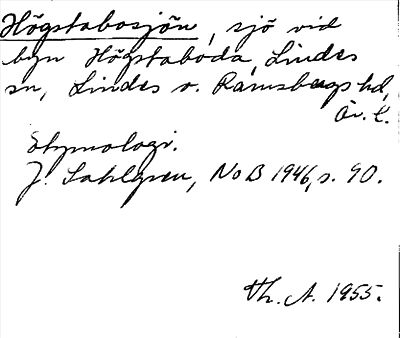 Högstabosjön, sjö vid
byn Högstaboda, Lindes
sn, Lindes o. Ramsbergs hd,
Ör. l.
Etymologi.
J. Sahlgren, NoB 1946, s. 90.
Th. A. 1955.